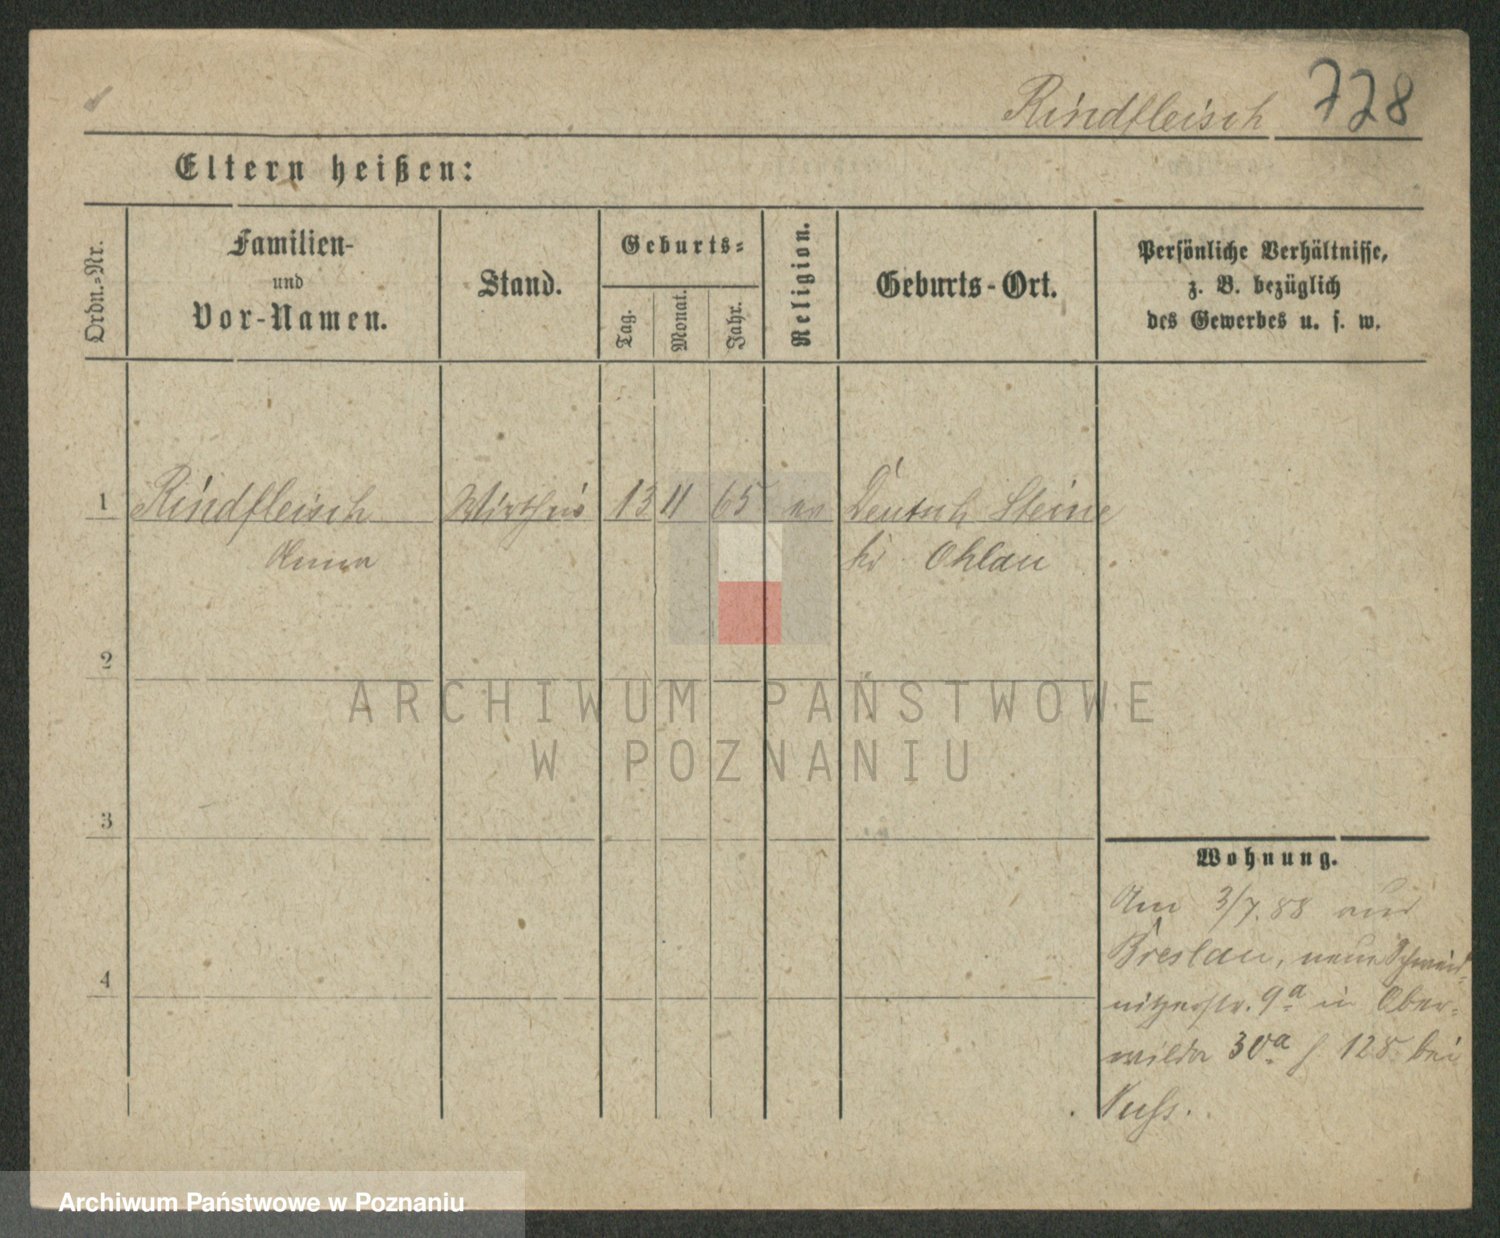 Rindfleisch 728
Eltern heißen:
Ordn.-Nr.
Familien-
und
Vor-Namen.
Stand.
Geburts-
Tag.
Monat.
Jahr.
Religion.
Geburts-Ort.
Persönliche Verhältnisse,
z. B. bezüglich
des Gewerbes u. s. w.
1 Rindfleisch Wirthin 13 11 65 ev Deutsch Steine
Anna Kr Ohlau
2
3
4
Wohnung.
Am 3/7.88 aus
Breslau, neue Schweid-
nitzerstr. 9a in Ober-
wilda 30a 128 bei
ARCHIWUM PAŃSTWOWE
W POZNANIU
Archiwum Państwowe w Poznaniu